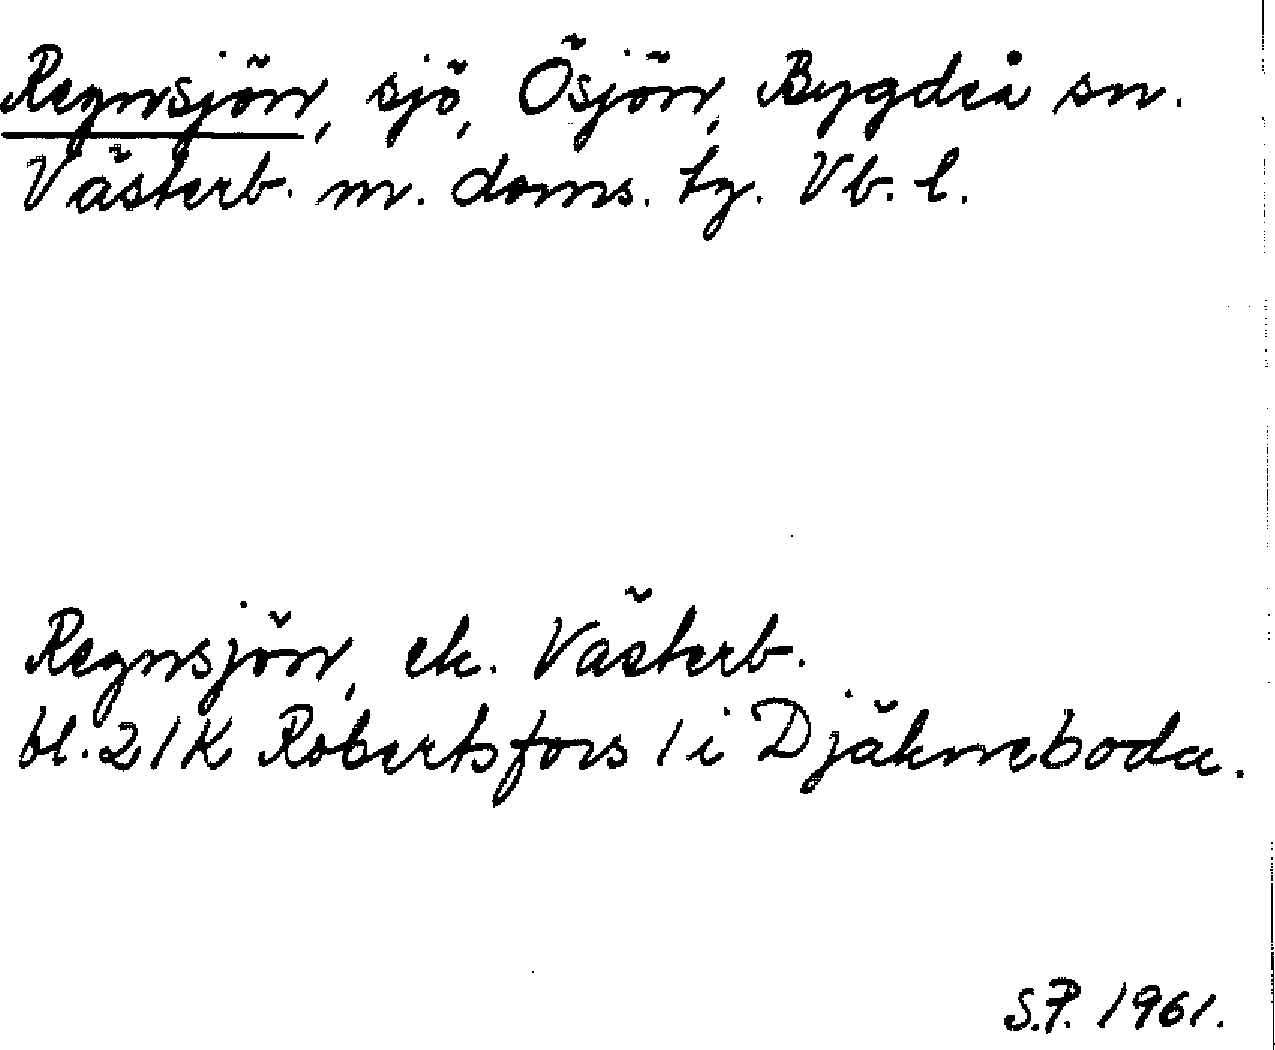 Regnsjön, sjö, Ösjön, Bygdeå sn.
Västerb. m. doms. tg. Vb. l.
Regnsjön, ek. Västerb.
bl. 21K Robertsfors 1 i Djäkneboda.
S.P. 1961.